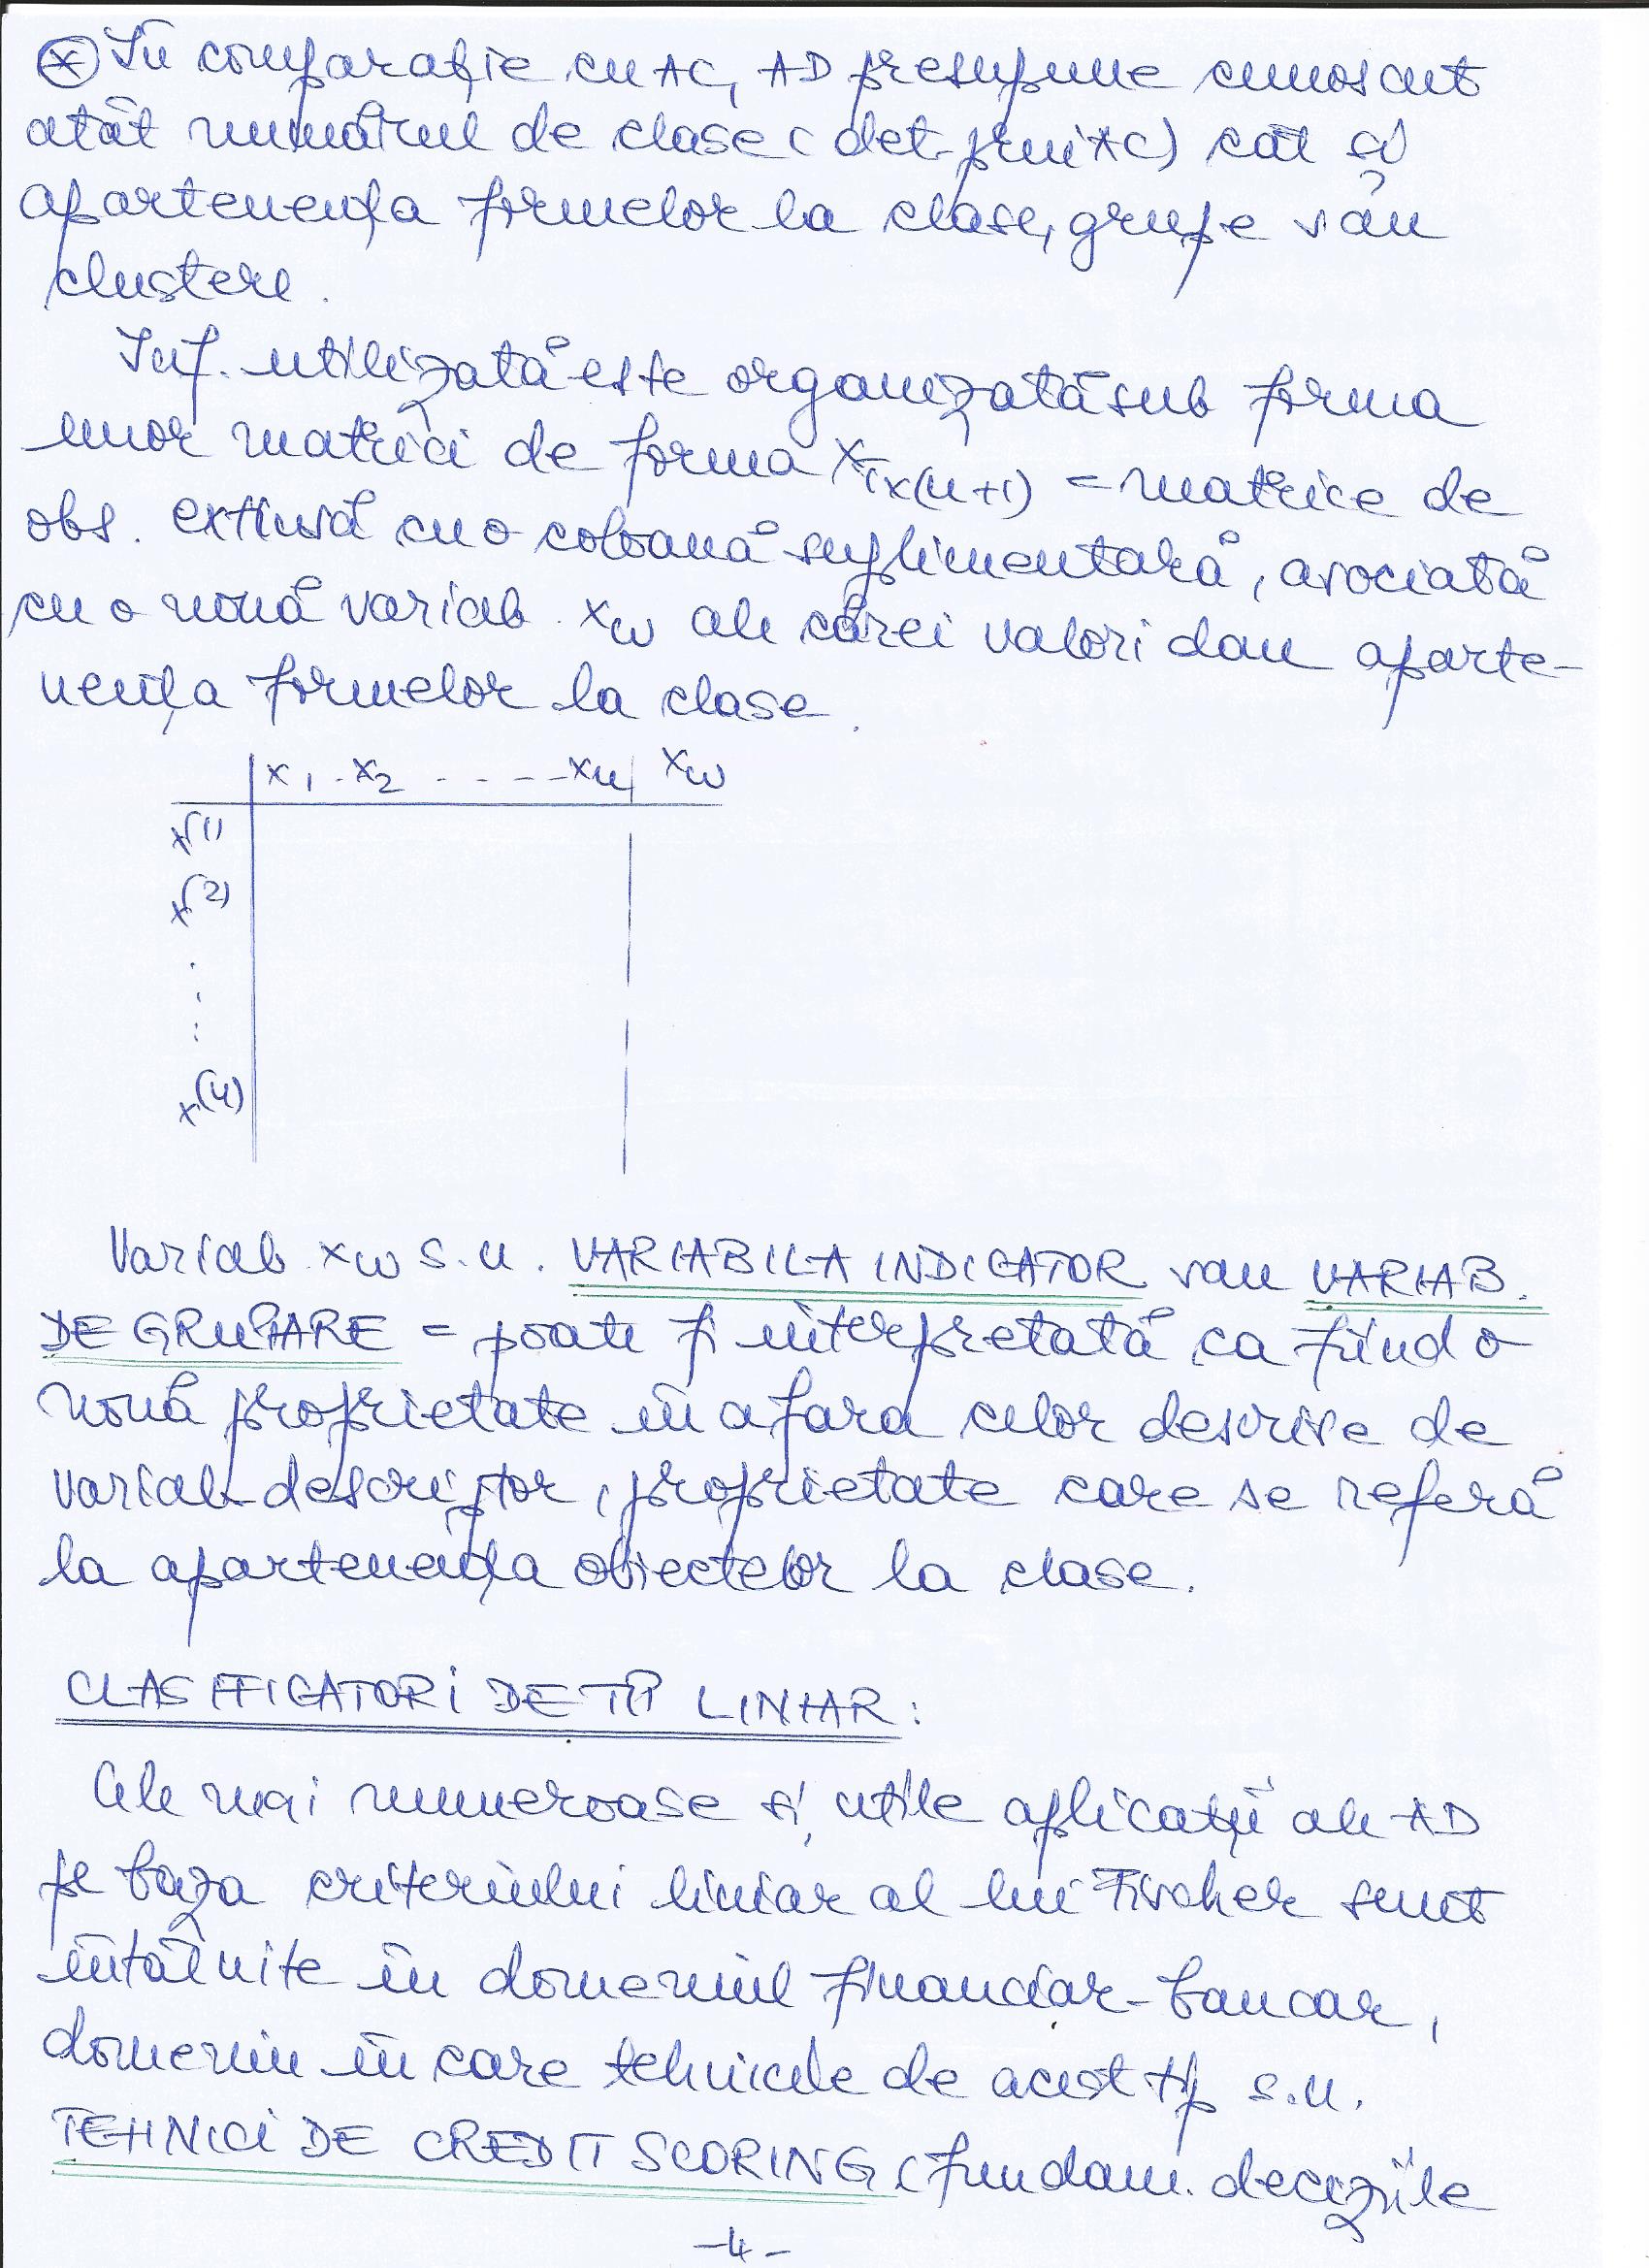 ⊛ În comparație cu AC, AD presupune cunoscut
atât numărul de clase (det. prin AC) cât și
apartenența formelor la clase, grupe sau
clustere.
Inf. utilizată este organizată sub forma
unor matrici de forma X T×(n+1) = matrice de
obs. extinsă cu o coloană suplimentară, asociată
cu o nouă variab. xω ale cărei valori dau aparte-
nența formelor la clase.
x1 x2 ----- xn xω
x(1)
x(2)
.
.
:
x(4)
Variab. xω s.n. VARIABILA INDICATOR sau VARIAB.
DE GRUPARE = poate fi interpretată ca fiind o
nouă proprietate în afara celor descrise de
variab. descriptor, proprietate care se referă
la apartenența obiectelor la clase.
CLASIFICATORI DE TIP LINIAR:
Cele mai numeroase și utile aplicații ale AD
pe baza criteriului liniar al lui Fischer sunt
întâlnite în domeniul financiar-bancar,
domeniu în care tehnicile de acest tip s.n.
TEHNICI DE CREDIT SCORING (fundam. deciziile
-4-